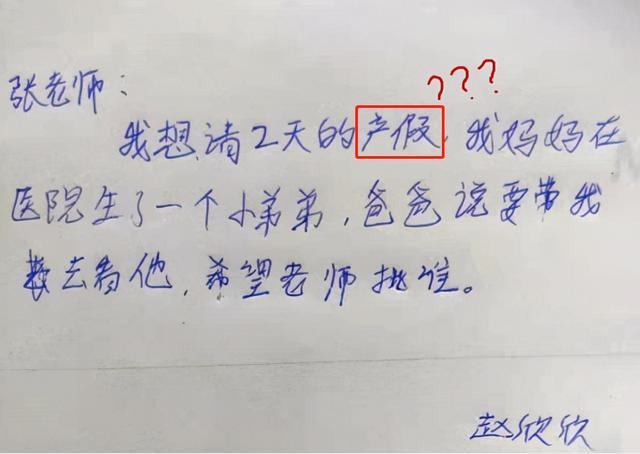 张老师：
???
我想请2天的产假，我妈妈在
医院生了一个小弟弟，爸爸说要带我
去看他，希望老师批准。
赵欣欣